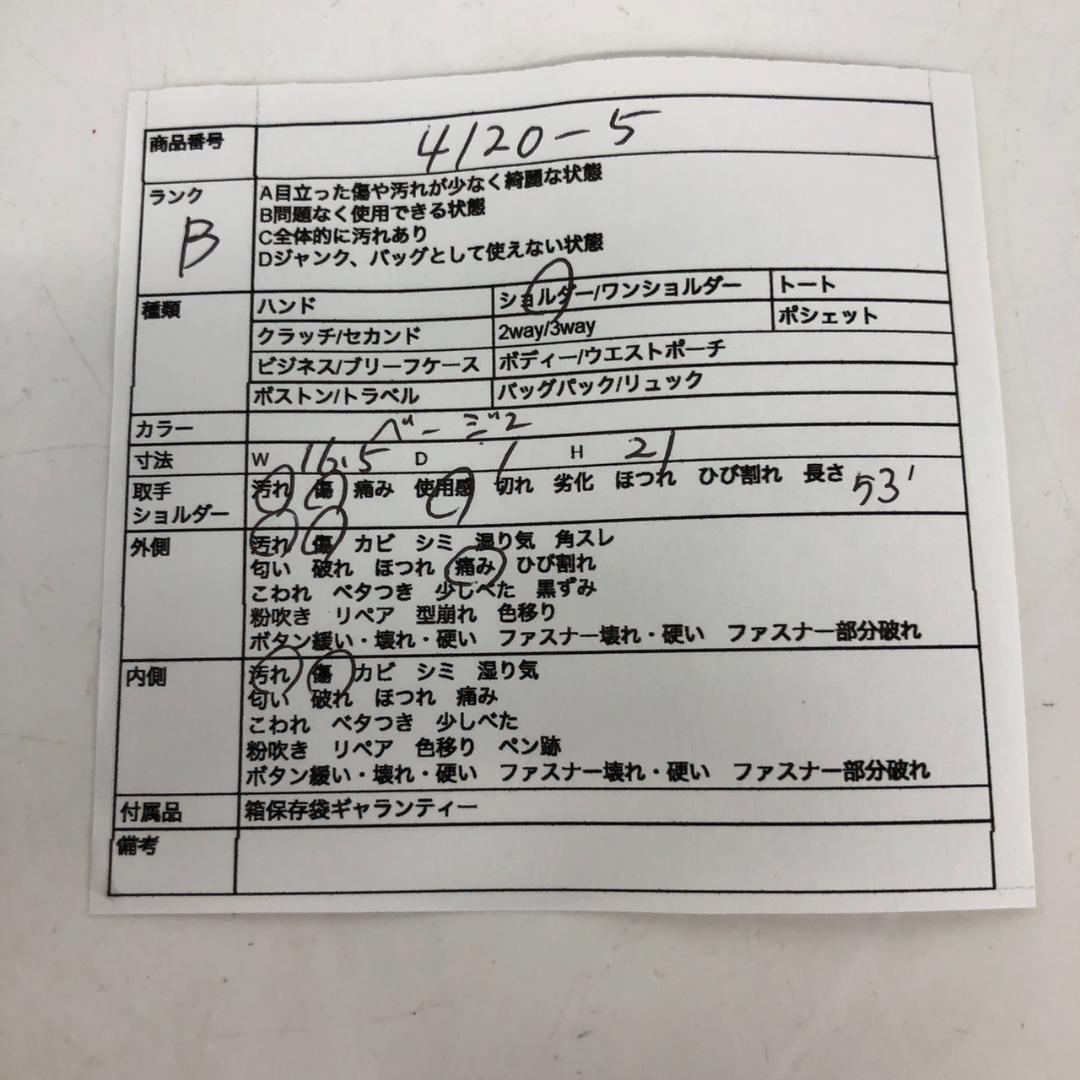 商品番号 4120-5
ランク B
A目立った傷や汚れが少なく綺麗な状態
B問題なく使用できる状態
C全体的に汚れあり
Dジャンク、バッグとして使えない状態
種類 ハンド ショルダー/ワンショルダー トート
クラッチ/セカンド 2way/3way ポシェット
ビジネス/ブリーフケース ボディー/ウエストポーチ
ボストン/トラベル バッグパック/リュック
カラー ベージュ
寸法 W 16.5 D 1 H 21
取手 汚れ 傷 痛み 使用感 切れ 劣化 ほつれ ひび割れ 長さ 53
ショルダー
外側 汚れ 傷 カビ シミ 湿り気 角スレ
匂い 破れ ほつれ 痛み ひび割れ
こわれ ベタつき 少しべた 黒ずみ
粉吹き リペア 型崩れ 色移り
ボタン緩い・壊れ・硬い ファスナー壊れ・硬い ファスナー部分破れ
内側 汚れ 傷 カビ シミ 湿り気
匂い 破れ ほつれ 痛み
こわれ ベタつき 少しべた
粉吹き リペア 色移り ペン跡
ボタン緩い・壊れ・硬い ファスナー壊れ・硬い ファスナー部分破れ
付属品 箱保存袋ギャランティー
備考